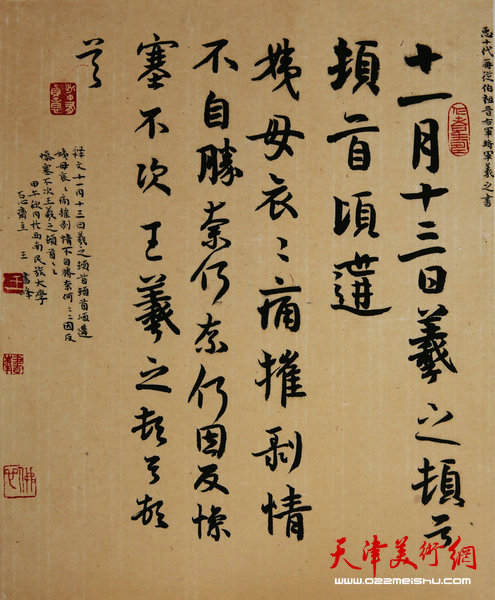 臣十代再從伯祖晉右軍將軍羲之書
十一月十三日羲之頓首
頓首頃遘
姨母哀〻痛摧剥情
不自勝奈何奈何因反慘
塞不次王羲之頓首頓
首
釋文十一月十三日羲之頓首頓首頃遘
姨母哀〻痛摧剥情不自勝奈何〻〻因反
慘塞不次王羲之頓首〻〻
甲午秋月於西南民族大學
王書峯
天津美術網
www.022meishu.com